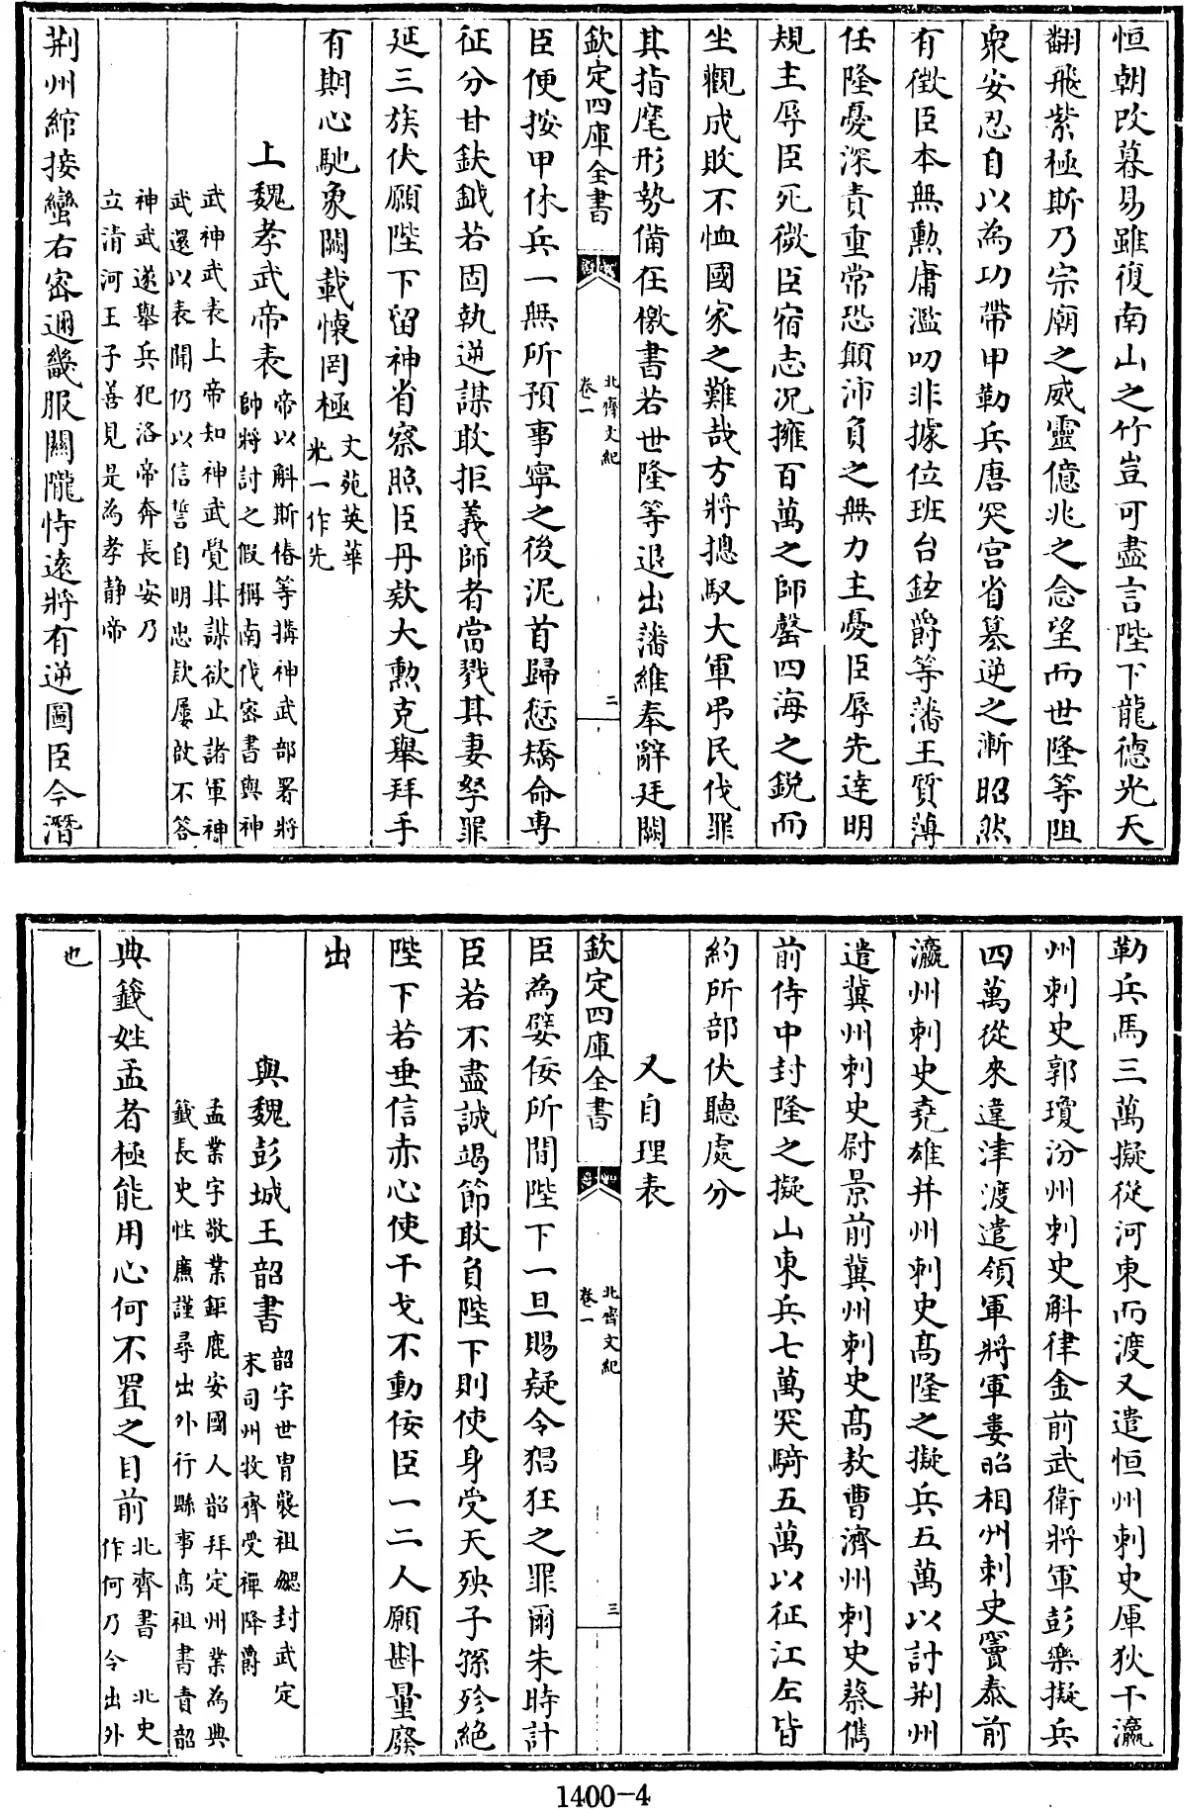 恒朝改暮易雖復南山之竹豈可盡言陛下龍德光天
翻飛紫極斯乃宗廟之威靈億兆之念望而世隆等阻
衆安忍自以為功帶甲勒兵唐突宮省篡逆之漸昭然
有徵臣本無勲庸濫叨非據位班台鉉爵等藩王質薄
任隆憂深責重常恐顛沛負之無力主憂臣辱先達明
規主辱臣死微臣宿志况擁百萬之師罄四海之鋭而
坐觀成敗不恤國家之難哉方將摠馭大軍弔民伐罪
其指麾形勢備在檄書若世隆等退出藩維奉辭廷闕
欽定四庫全書
北齊文紀
卷一
二
臣便按甲休兵一無所預事寧之後泥首歸愆矯命專
征分甘鈇鉞若固執逆謀敢拒義師者當戮其妻孥罪
延三族伏願陛下留神省察照臣丹欵大勲克舉拜手
有期心馳象闕載懷罔極
文苑英華
光一作先
上魏孝武帝表
帝以斛斯椿等搆神武部署將
帥將討之假稱南伐密書與神
武神武表上帝知神武覺其謀欲止諸軍神
武還以表聞仍以信誓自明忠欵屢啟不答
神武遂舉兵犯洛帝奔長安乃
立清河王子善見是為孝静帝
荆州綰接蠻右密邇畿服關隴恃遠將有逆圖臣今潛
勒兵馬三萬擬從河東而渡又遣恒州刺史厙狄干瀛
州刺史郭瓊汾州刺史斛律金前武衛將軍彭樂擬兵
四萬從來違津渡遣領軍將軍婁昭相州刺史竇泰前
瀛州刺史堯雄并州刺史髙隆之擬兵五萬以討荆州
遣冀州刺史尉景前冀州刺史髙敖曹濟州刺史蔡儁
前侍中封隆之擬山東兵七萬突騎五萬以征江左皆
約所部伏聽處分
又自理表
欽定四庫全書
北齊文紀
卷一
三
臣為嬖佞所間陛下一旦賜疑令猖狂之罪爾朱時計
臣若不盡誠竭節敢負陛下則使身受天殃子孫殄絶
陛下若垂信赤心使干戈不動佞臣一二人願斟量廢
出
與魏彭城王韶書
韶字世胄襲祖勰封武定
末司州牧齊受禪降爵
孟業字敬業鉅鹿安國人韶拜定州業為典
籤長史性廉謹尋出外行縣事髙祖書責韶
典籤姓孟者極能用心何不置之目前
北齊書　北史
作何乃令出外
也
1400-4